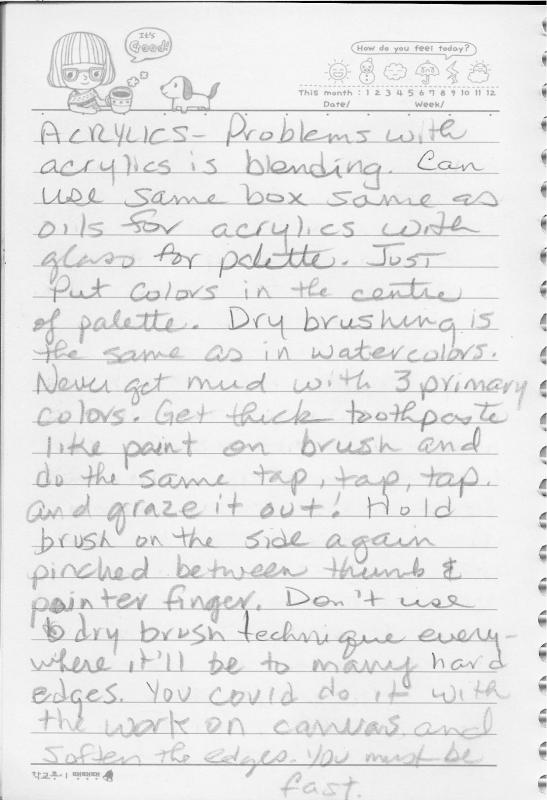 It's Good!
How do you feel today?
This month : 1 2 3 4 5 6 7 8 9 10 11 12
Date/ Week/
ACRYLICS - Problems with
acrylics is blending. Can
use same box same as
oils for acrylics with
glass for palette. Just
Put colors in the centre
of palette. Dry brushing is
the same as in watercolors.
Never get mud with 3 primary
colors. Get thick toothpaste
like paint on brush and
do the same tap, tap, tap.
and graze it out! Hold
brush on the side again
pinched between thumb &
pointer finger. Don't use
dry brush technique every-
where it'll be to many hard
edges. You could do it with
the work on canvas and
soften the edges. You must be
fast.